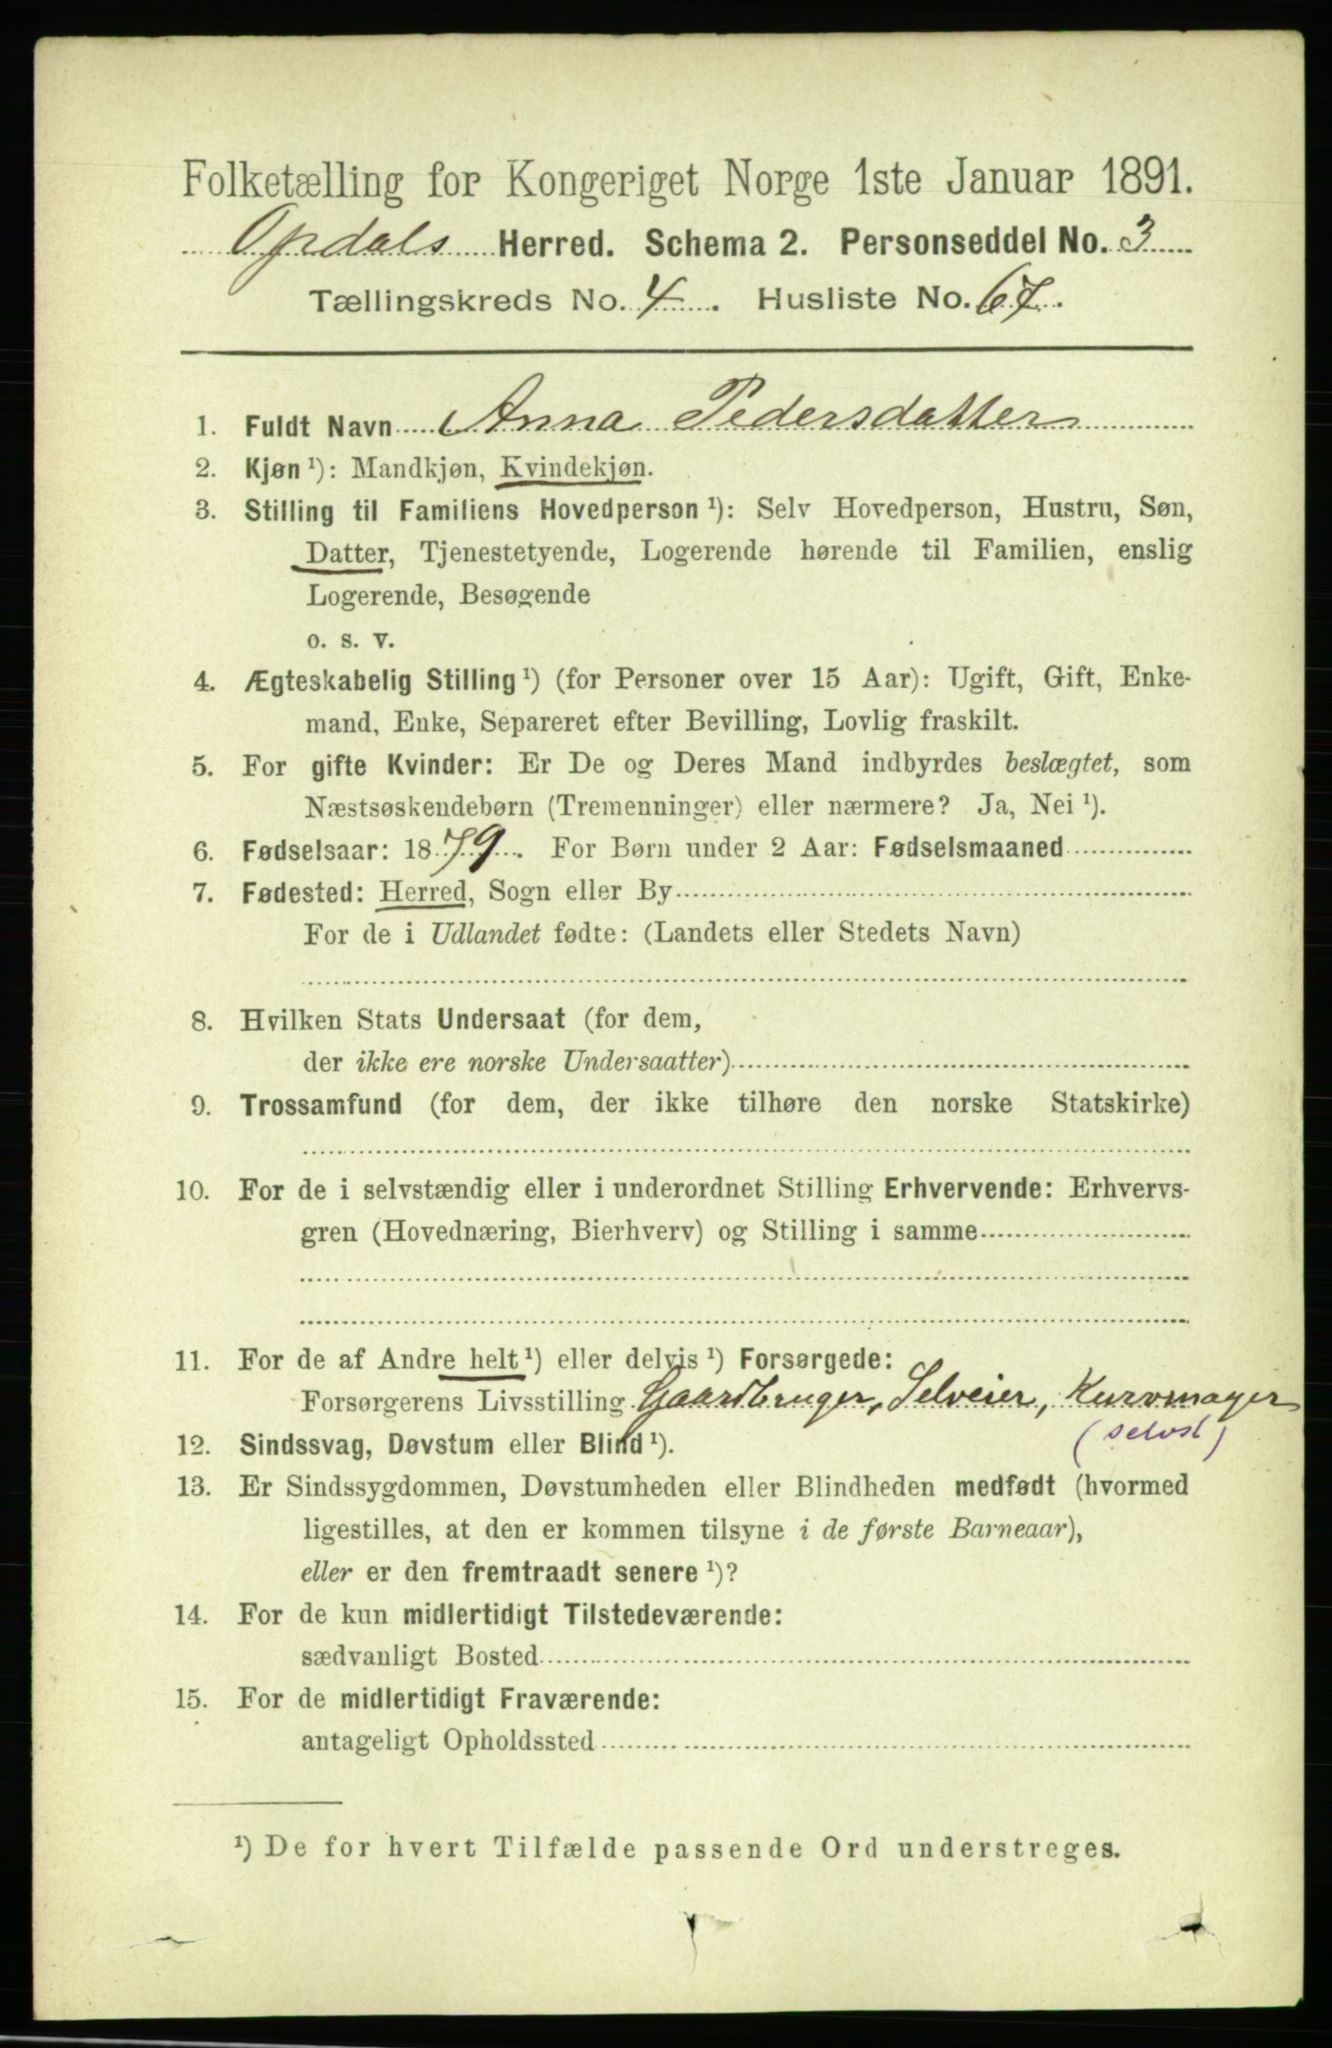 Folketælling for Kongeriget Norge 1ste Januar 1891.
Opdals Herred. Schema 2. Personseddel No. 3
Tællingskreds No. 4. Husliste No. 67.
1. Fuldt Navn Anna Pedersdatter
2. Kjøn ¹): Mandkjøn, Kvindekjøn.
3. Stilling til Familiens Hovedperson ¹): Selv Hovedperson, Hustru, Søn,
Datter, Tjenestetyende, Logerende hørende til Familien, enslig
Logerende, Besøgende
o. s. v.
4. Ægteskabelig Stilling ¹) (for Personer over 15 Aar): Ugift, Gift, Enke-
mand, Enke, Separeret efter Bevilling, Lovlig fraskilt.
5. For gifte Kvinder: Er De og Deres Mand indbyrdes beslægtet, som
Næstsøskendebørn (Tremenninger) eller nærmere? Ja, Nei ¹).
6. Fødselsaar: 1879. For Børn under 2 Aar: Fødselsmaaned
7. Fødested: Herred, Sogn eller By
For de i Udlandet fødte: (Landets eller Stedets Navn)
8. Hvilken Stats Undersaat (for dem,
der ikke ere norske Undersaatter)
9. Trossamfund (for dem, der ikke tilhøre den norske Statskirke)
10. For de i selvstændig eller i underordnet Stilling Erhvervende: Erhvervs-
gren (Hovednæring, Bierhverv) og Stilling i samme
11. For de af Andre helt ¹) eller delvis ¹) Forsørgede:
Forsørgerens Livsstilling Gaardbruger, Selveier, Kurvmager
(selvst)
12. Sindssvag, Døvstum eller Blind ¹).
13. Er Sindssygdommen, Døvstumheden eller Blindheden medfødt (hvormed
ligestilles, at den er kommen tilsyne i de første Barneaar),
eller er den fremtraadt senere ¹)?
14. For de kun midlertidigt Tilstedeværende:
sædvanligt Bosted
15. For de midlertidigt Fraværende:
antageligt Opholdssted
¹) De for hvert Tilfælde passende Ord understreges.